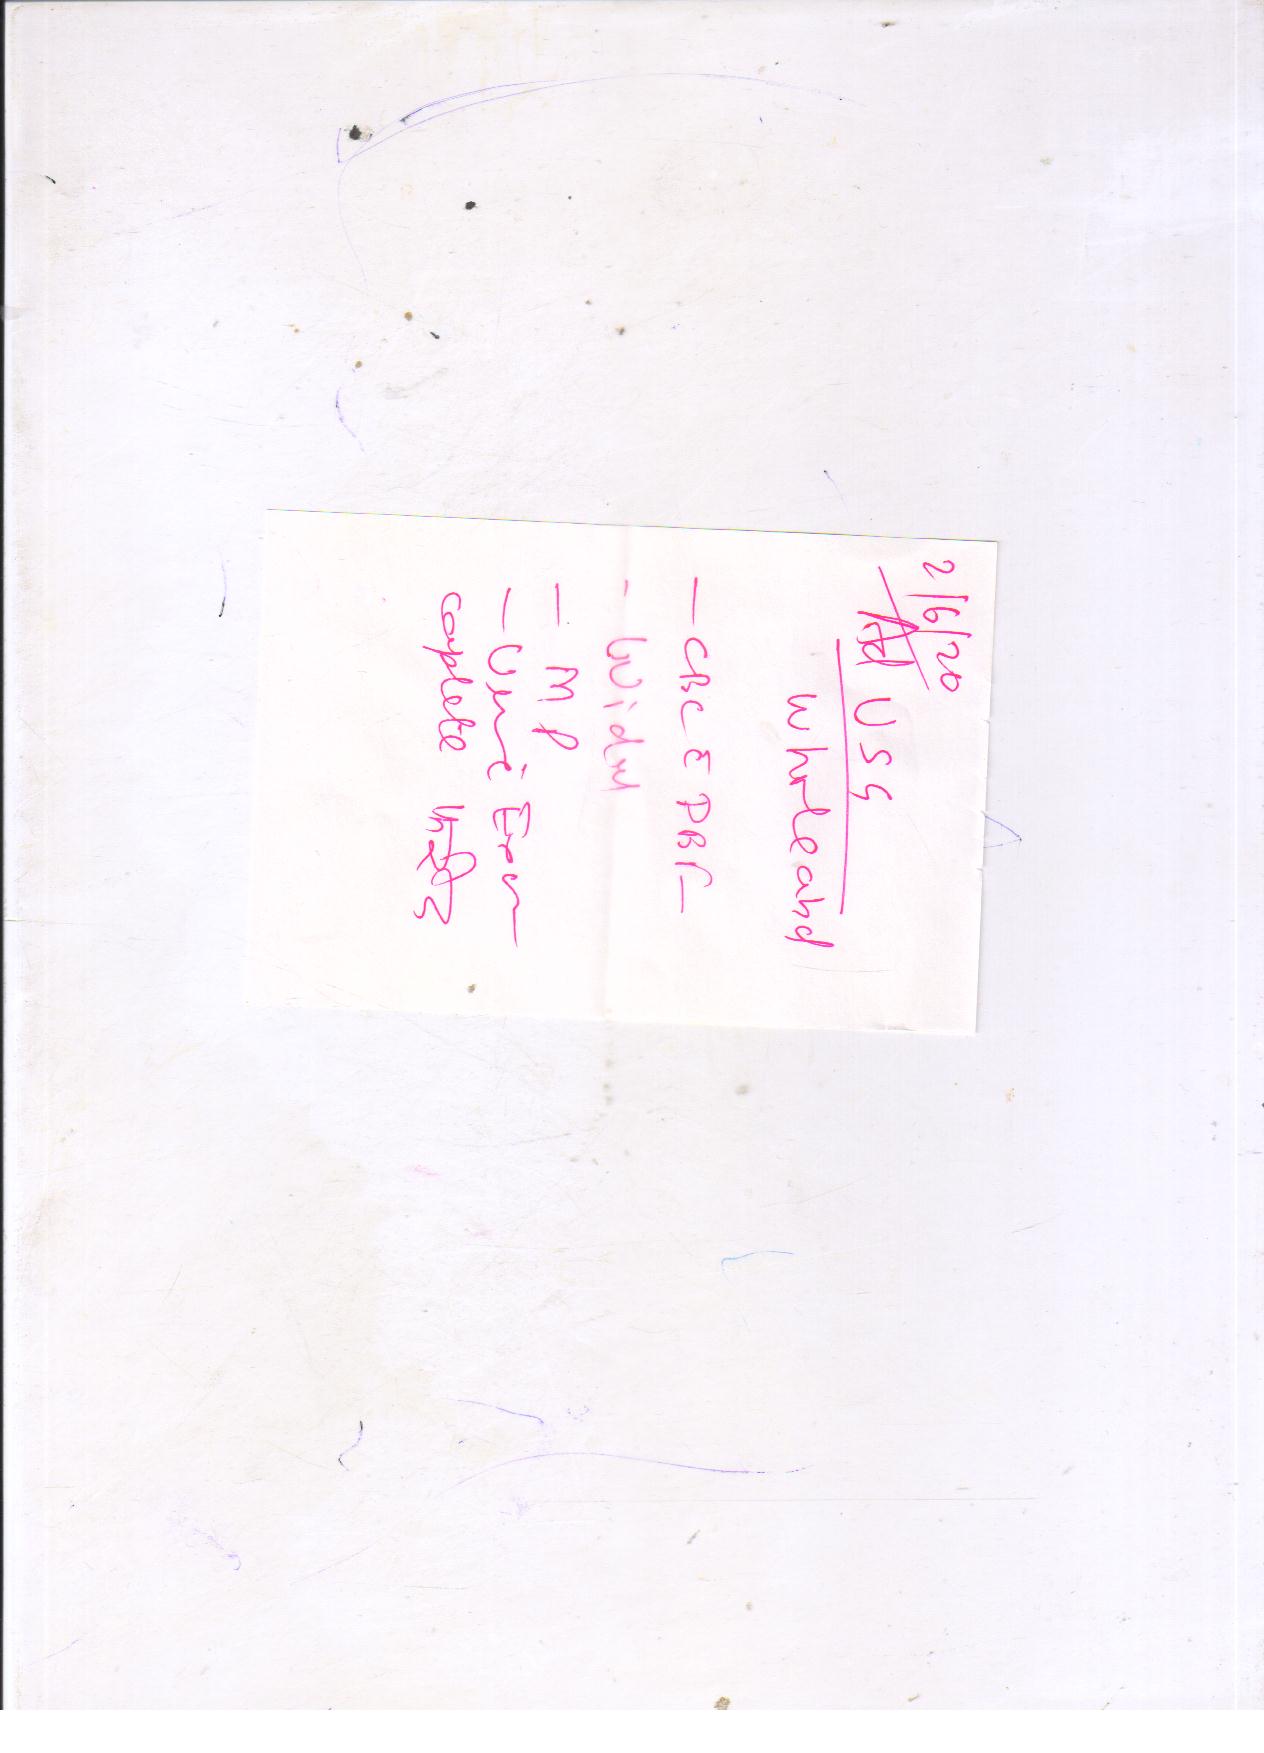 2/6/20
Ad USG
Whole abd
- CBC c̄ PBF
- Widal
- MP
- Urine Exam
complete